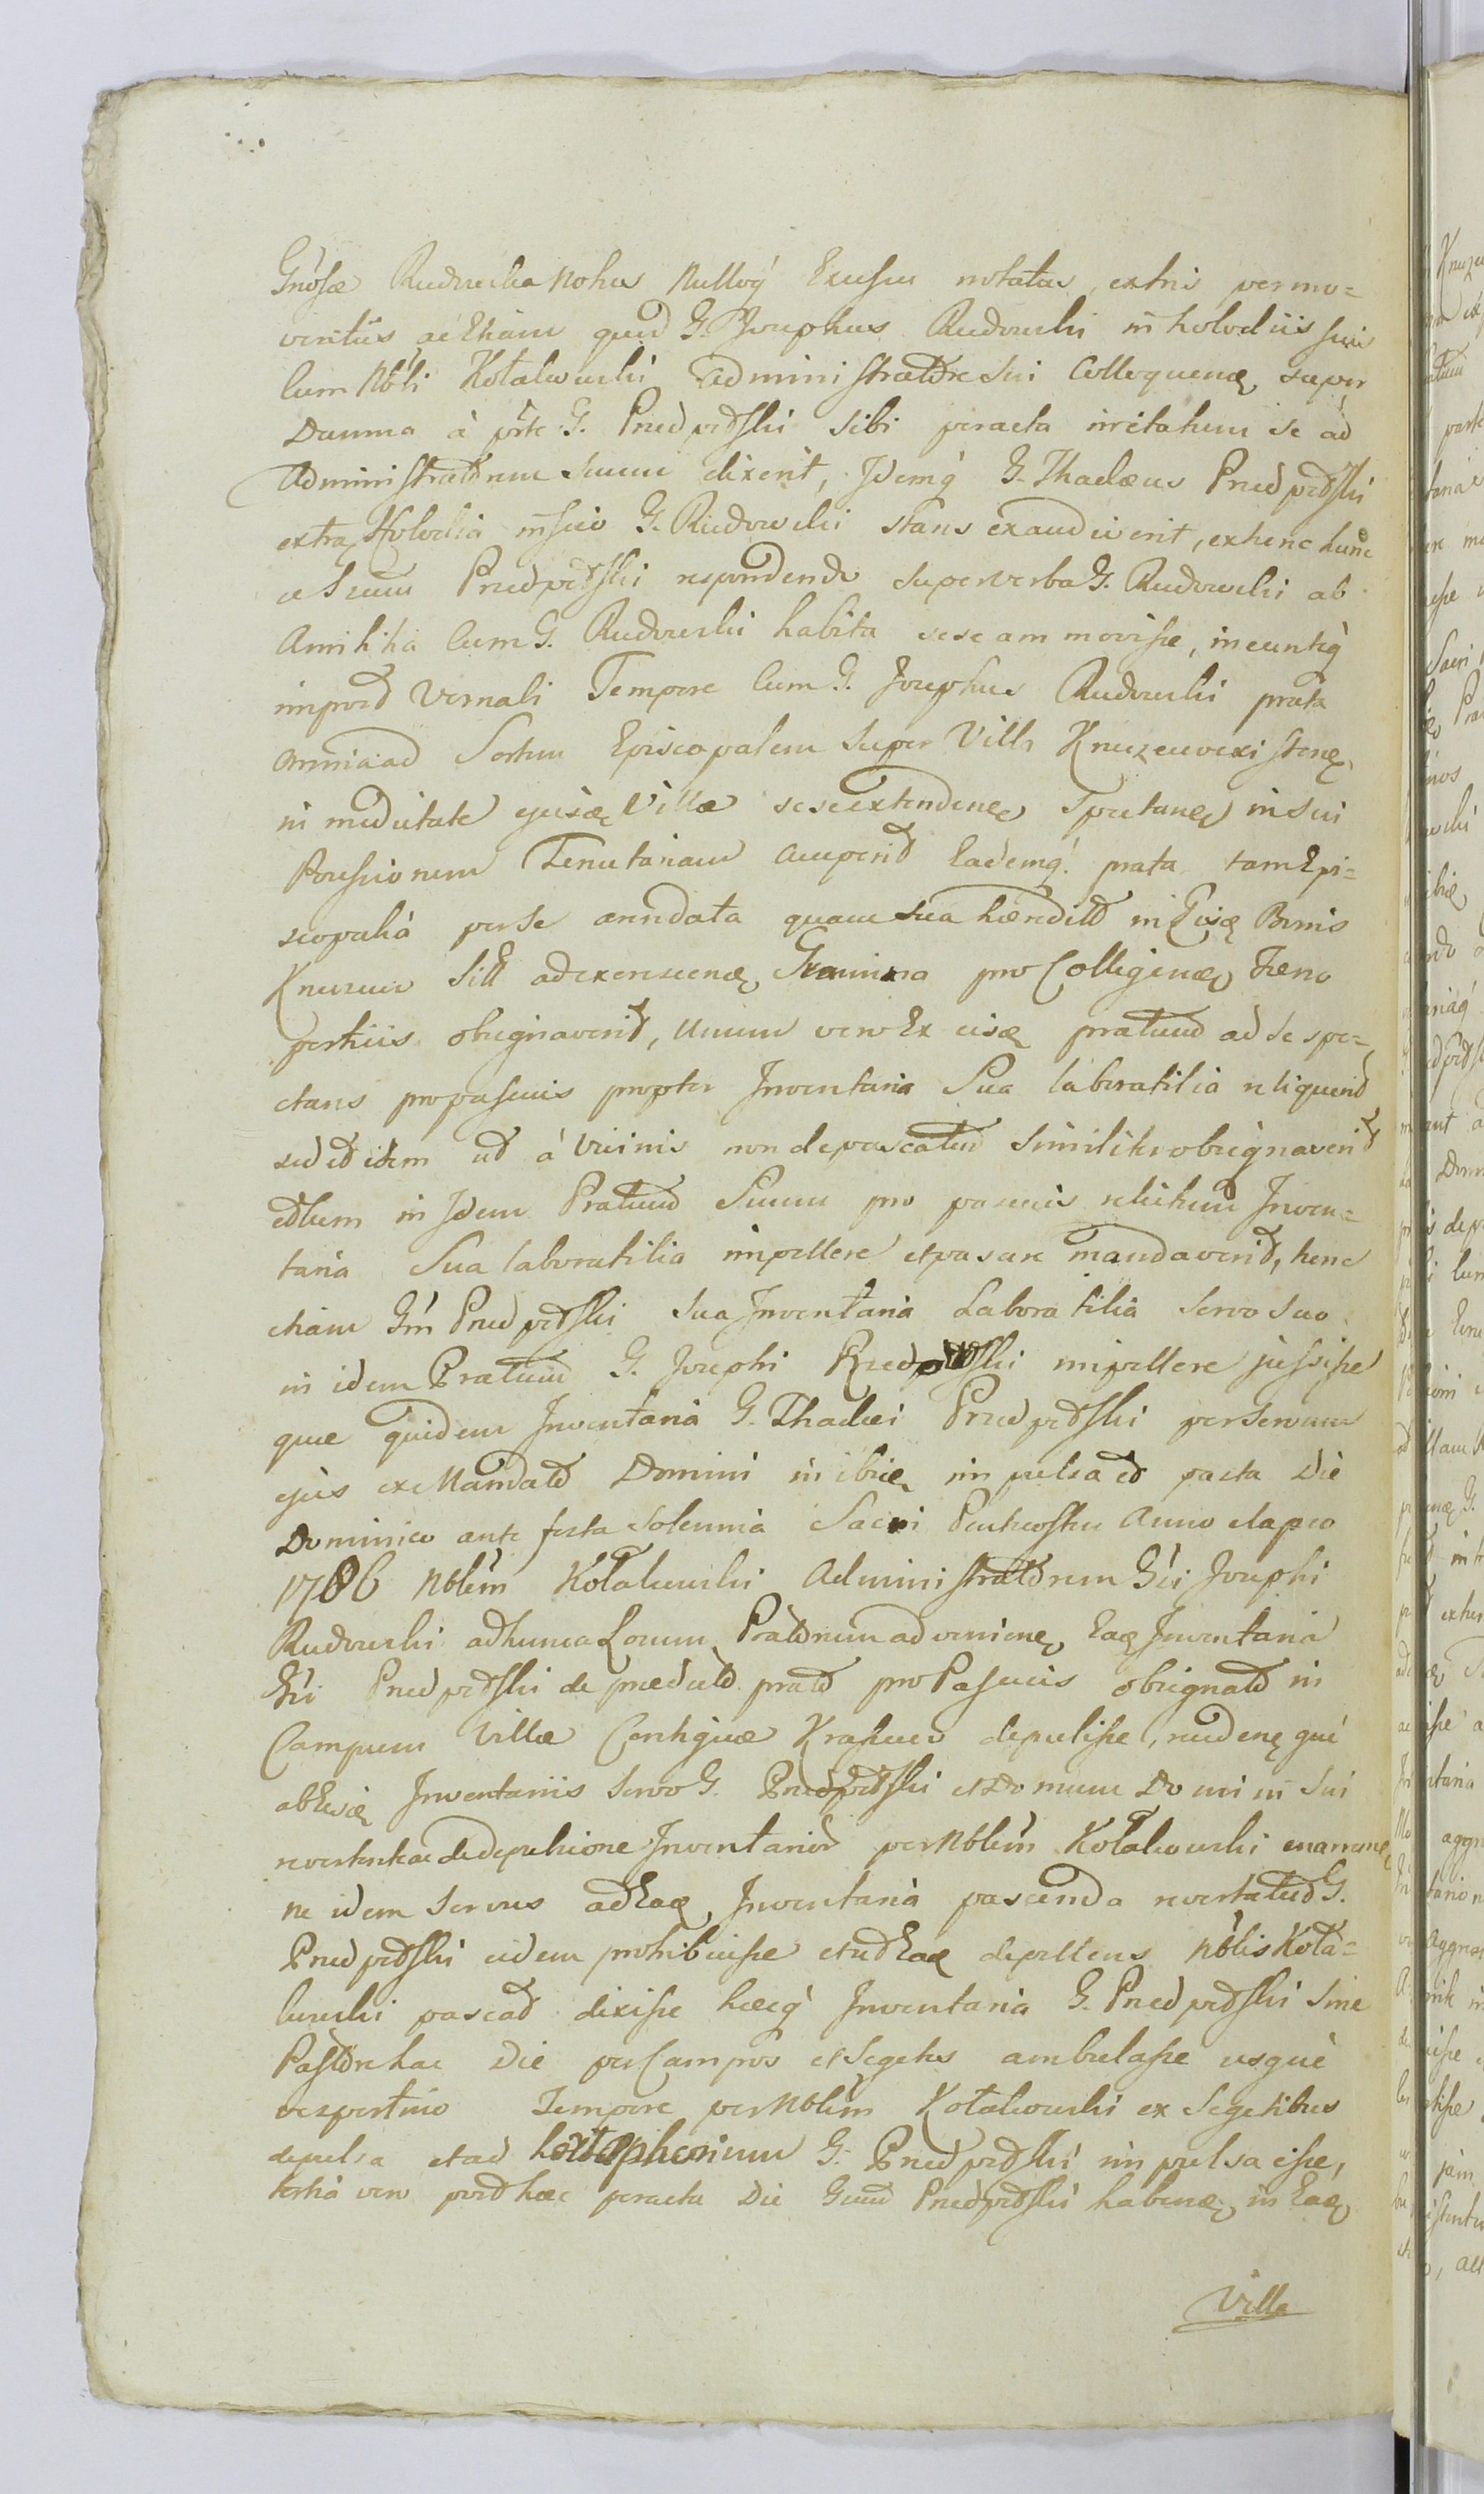 Gnosæ Rudowska nohus nulloq́ Excessu notatas, extris permo=
ventiis ac Etiam quod G. Josephus Rudowski in holodiis suis
Cum Nbli Kołakowski administratore Sui Colloquens super
Damna à prte G. Przedpełski Sibi peracta irritatum se ad
Administratorem Suum dixerit, Idemq́ G. Thadæus Przedpełski
extra Holodia in suis G. Rudowski stans exaudiverit, exhinc hunc
Przedpełski respondendo super verba G. Rudowski ab
Amicitia Cum G. Rudowski habita sese ammovisse, ineunteq́
Vernali Tempore Cum G. Josephus Rudowski prata
omnia ad Sortem Episcopalem Super Villa Knuzewo existen
in medietate ejusd Villæ sese extenden Spectan in Sui
Possessionem Tenutariam acceperit Eademq́ prata tam Epi=
scopalia per se arindata quam sua hæredita in Eisd Bonis
Knuzewo Sitt ad excrescen Gramina pro Colligen Fæno
pertiis obsignaverit, unum vero Ex eisd pratum ad Se spe=
ctans pro pascuis propter Inventaria Sua laboratilia reliquerit
sed et idem ut à Vicinis non depascatur similiter obsignaverit
in Idem Pratum Suum pro pascuis relictum Inven=
taria Sua laboratilia impellere et pascere mandaverit, hinc
etiam Gm Przedpełski sua Inventaria Laboratilia Servo Suo
in idem Pratum G. Josephi Przedpełski impellere jussisse
quæ quidem Inventaria G. Thadæi Przedpełski per Servum
ejus ex Mandato Domini in ibid impulsa et pasta Die
Dominico ante festa Solennia Sacri Penthecostes Anno elapso
1786 Nblem Kołakowski Administratorem Gsi Josephi
Rudowski ad hunca Locum Pratorum advenien Ead Inventaria
Gsi Przedpełski de præducto prato pro Pascuis obsignato in
Campum Villæ Contiguæ Krasewo depulisse,
ab Eisd Inventariis Servo G. Przedpełski et Domum Domini Sui
revertente ac de depulsione Inventarior per Nblem Kołakowski enarran
ne idem Servus ad Ead Inventaria pascenda revertatur G.
Przedpełski eidem prohibuisse et ut Ead depellens Nblis Koła=
kowski pascat dixisse hæcq́ Inventaria G. Przedpełski Sine
Pastore hac Die per Campos et Segetes ambulasse usquè
vespertino Tempore per Nblem Kołakowski ex Segetibus
depulsa et ad G. Przedpełski impulsa esse,
tertia vero post hæc peracta Die Gsum Przedpełski haben in Ead
Villa